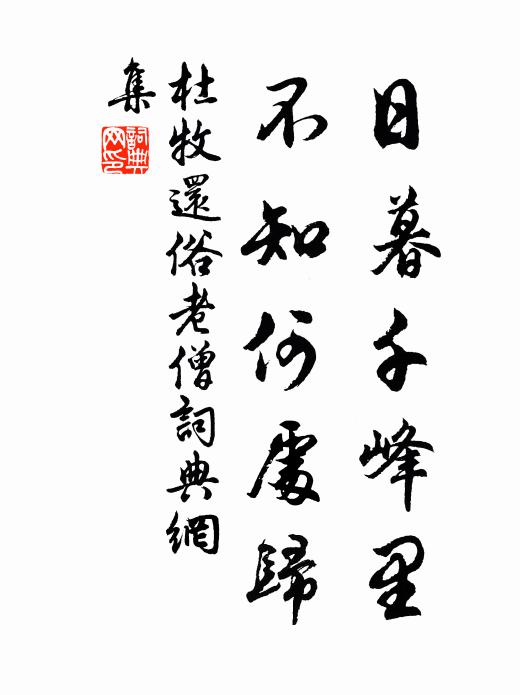 日暮千峰里
不知何處歸
杜牧還俗老僧詞典網
集
詞典
网印